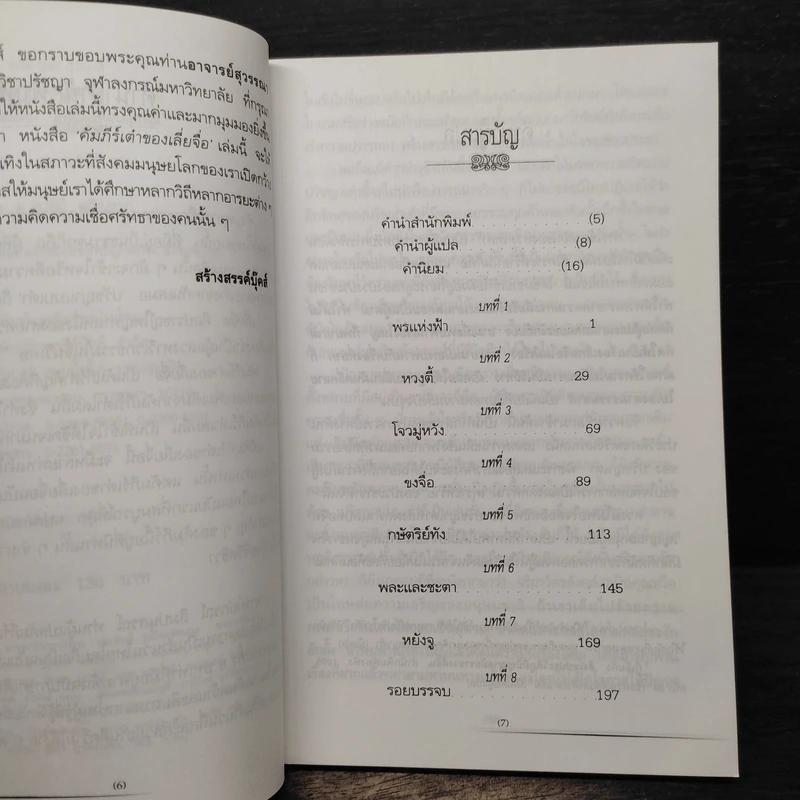 ส์ ขอกราบขอบพระคุณท่านอาจารย์สุวรรณา
วิชาปรัชญา จุฬาลงกรณ์มหาวิทยาลัย ที่กรุณา
ให้หนังสือเล่มนี้ทรงคุณค่าและมากมุมมองยิ่งขึ้น
า หนังสือ 'คัมภีร์เต๋าของเลี่ยจื่อ' เล่มนี้ จะให้
เทิงในสภาวะที่สังคมมนุษยโลกของเราเปิดกว้าง
าสให้มนุษย์เราได้ศึกษาหลากวิถีหลากอารยะต่าง ๆ
วามคิดความเชื่อศรัทธาของคนนั้น ๆ
สร้างสรรค์บุ๊คส์
(6)
สารบัญ
คำนำสำนักพิมพ์ (5)
คำนำผู้แปล (8)
คำนิยม (16)
บทที่ 1
พรแห่งฟ้า 1
บทที่ 2
หวงตี้ 29
บทที่ 3
โจวมู่หวัง 69
บทที่ 4
ขงจื่อ 89
บทที่ 5
กษัตริย์ทัง 113
บทที่ 6
พละและชะตา 145
บทที่ 7
หยังจู 169
บทที่ 8
รอยบรรจบ 197
(7)